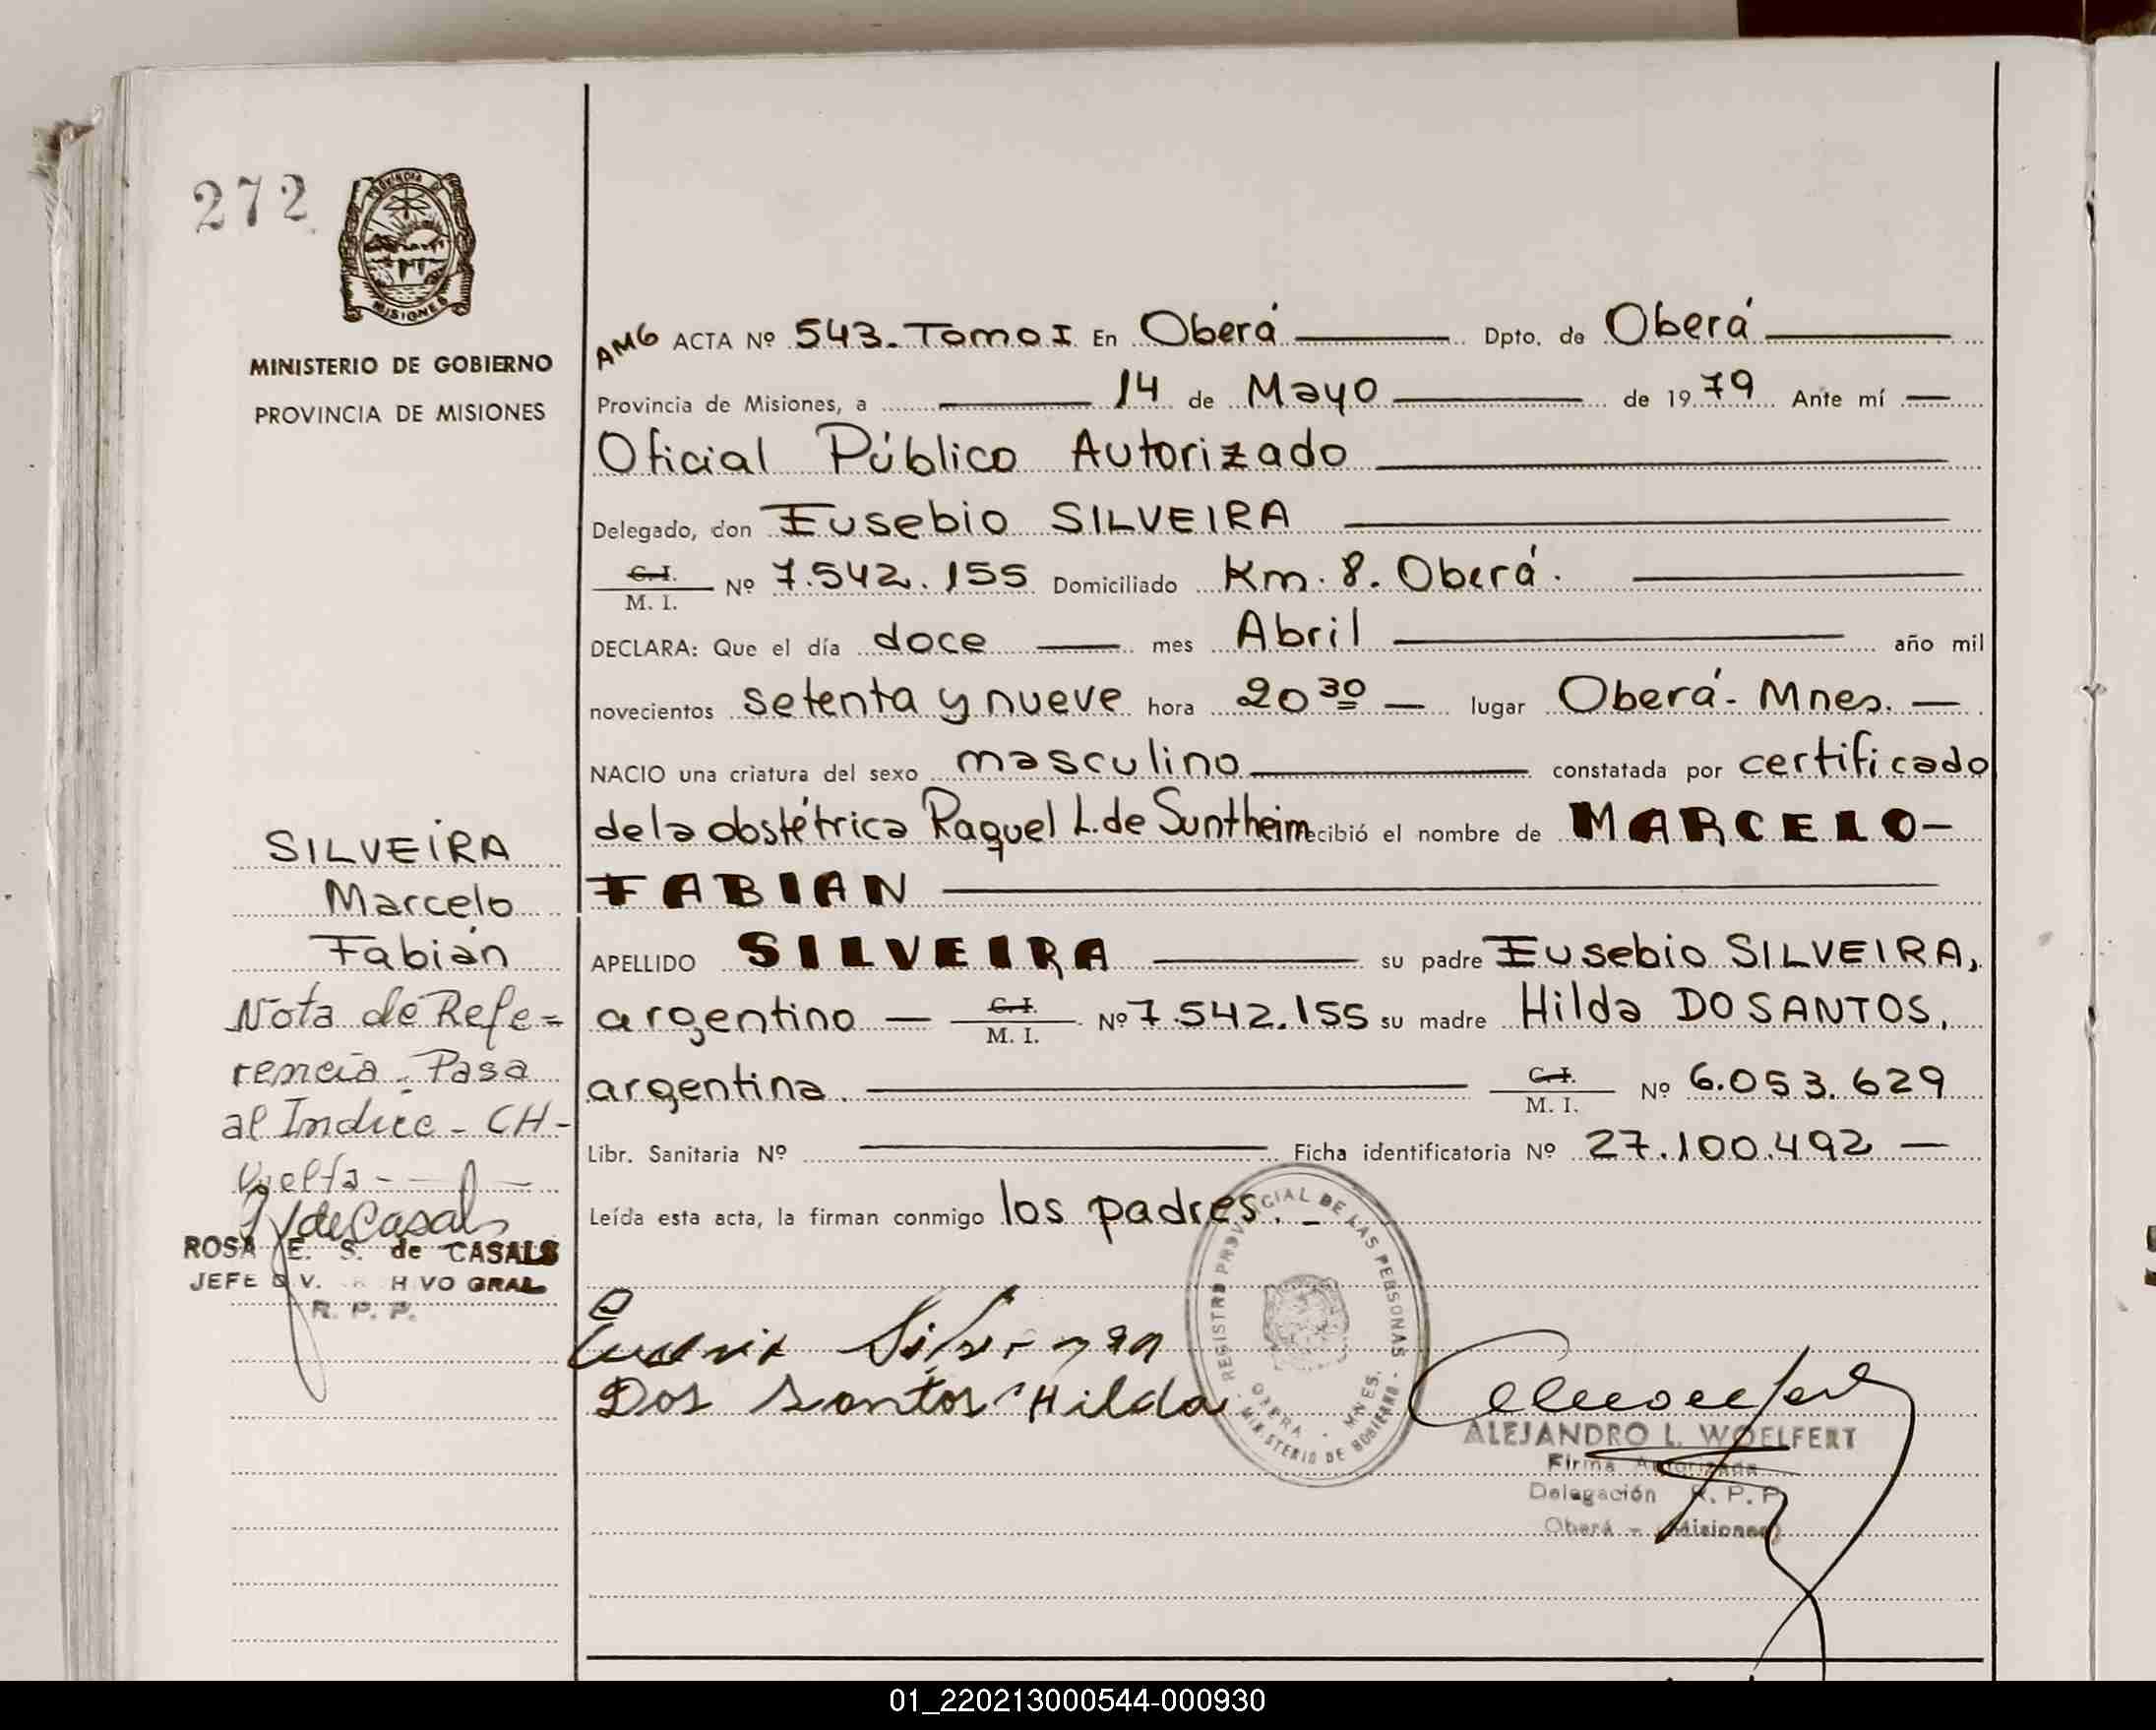 272
PROVINCIA DE
MISIONES
MINISTERIO DE GOBIERNO
PROVINCIA DE MISIONES
AMG ACTA Nº 543. Tomo I En Oberá Dpto. de Oberá
Provincia de Misiones, a 14 de Mayo de 1979 Ante mí
Oficial Público Autorizado
Delegado, don Eusebio SILVEIRA
C.I. M. I. Nº 7.542.155 Domiciliado Km. 8. Oberá.
DECLARA: Que el día doce mes Abril año mil
novecientos setenta y nueve hora 20 30 lugar Oberá - Mnes.
NACIO una criatura del sexo masculino constatada por certificado
de la obstétrica Raquel L. de Suntheim recibió el nombre de MARCELO-
FABIAN
APELLIDO SILVEIRA su padre Eusebio SILVEIRA,
argentino C.I. M. I. Nº 7.542.155 su madre Hilda DO SANTOS,
argentina. C.I. M. I. Nº 6.053.629
Libr. Sanitaria Nº Ficha identificatoria Nº 27.100.492
Leída esta acta, la firman conmigo los padres. -
SILVEIRA
Marcelo
Fabián
Nota de Refe=
rencia. Pasa
al Indice - CH -
Vuelta -
ROSA E. S. de CASALS
JEFE DIV. ARCHIVO GRAL
R. P. P.
Dos Santos Hilda
REGISTRO PROVINCIAL DE LAS PERSONAS
OBERA - MNES.
MINISTERIO DE GOBIERNO
ALEJANDRO L. WOELFERT
Firma Autorizada
Delegación R. P. P.
Oberá - (Misiones)
01_220213000544-000930